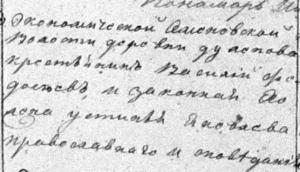 Пономарь
Экономической Аксиновской
Волости деревни Дулепова
крестьянинъ Василий Фе
досѣевъ и законная его
жена Устинья Яковлева
православнаго исповѣдания